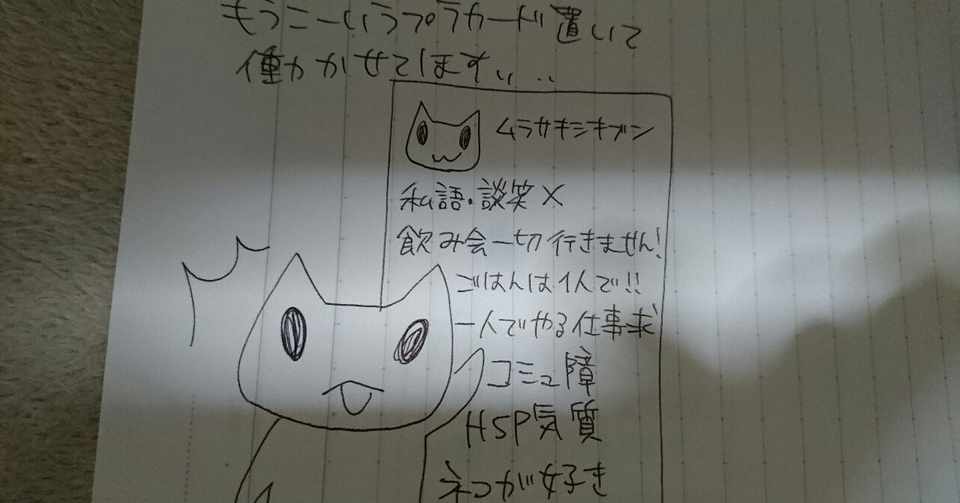 もうこーいうプラカード置いて
働かせてほます...
ムラサキシキブン
私語・談笑×
飲み会一切行きません!
ごはんは1人で!!
一人でやる仕事求
コミュ障
HSP気質
ネコが好き